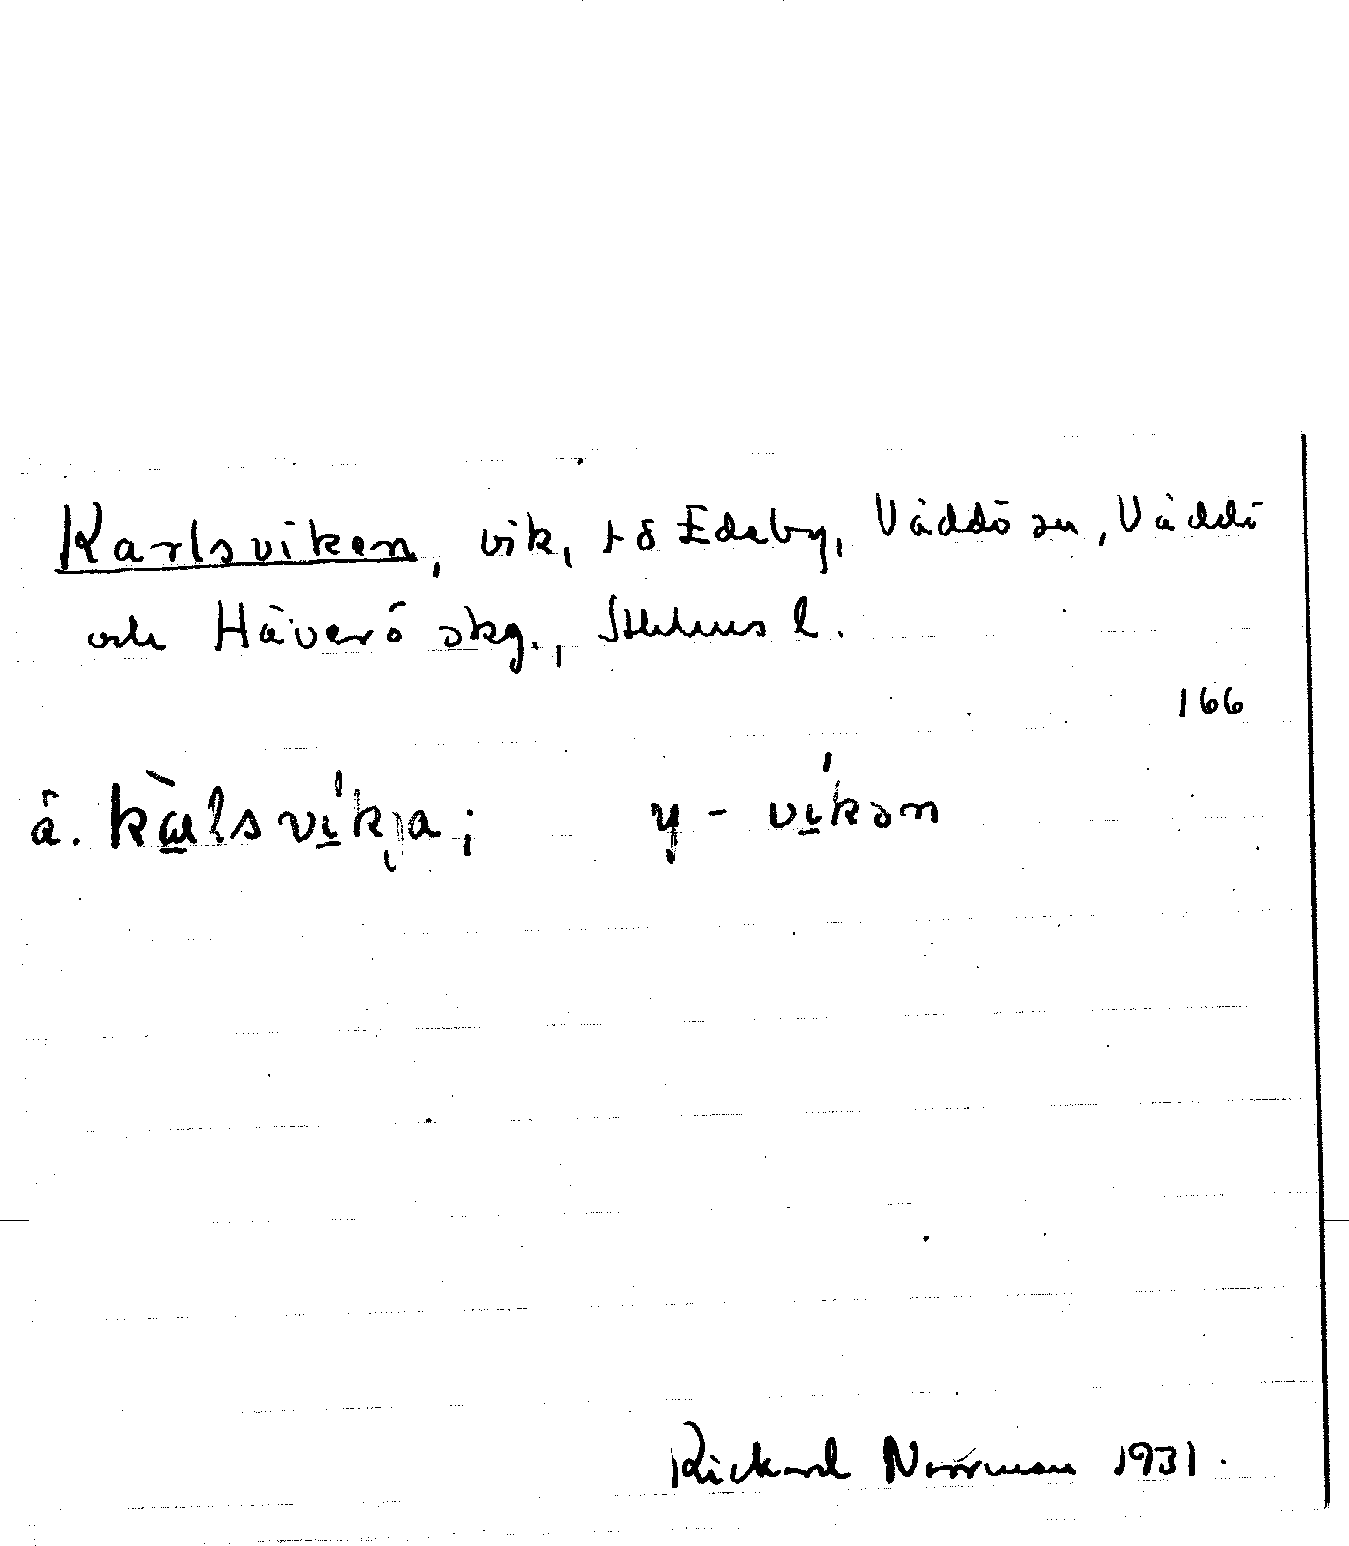 Karlsviken, vik, t ö Edeby, Väddö sn, Väddö
och Häverö skg., Sthlms l.
166
ä. kàlsvíkja; y - víkən
Rickard Norrman 1931.